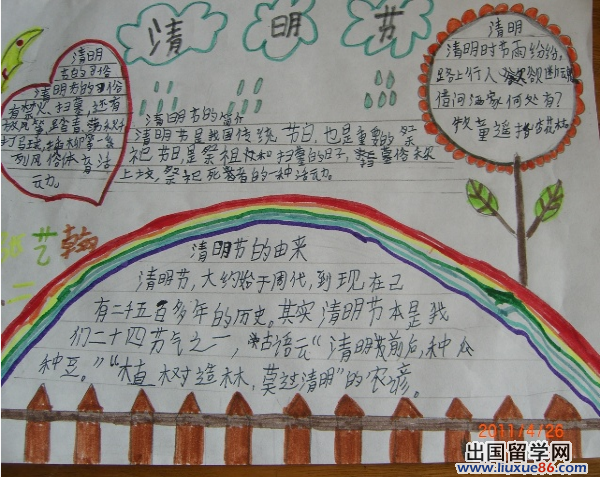 清明节
清明
去的习俗
清明节的习俗
有禁火、扫墓,还有
放风筝、踏青、荡秋千
打马球、插柳等一系
列风俗体育活
动。
清明节的简介
清明节是我国传统节日,也是重要的祭
祀节日,是祭祖和扫墓的日子,扫墓俗称
上坟,祭祀死者的一种活动。
清明
清明时节雨纷纷,
路上行人欲断魂
借问酒家何处有?
牧童遥指杏花村。
清明节的由来
清明节,大约始于周代,到现在已
有二千五百多年的历史。其实清明节本是我
们二十四节气之一,古语云“清明前后,种瓜
种豆。”“植树造林,莫过清明”的农谚。
艺翰
二
2011/4/26
出国留学网
www.liuxue86.com